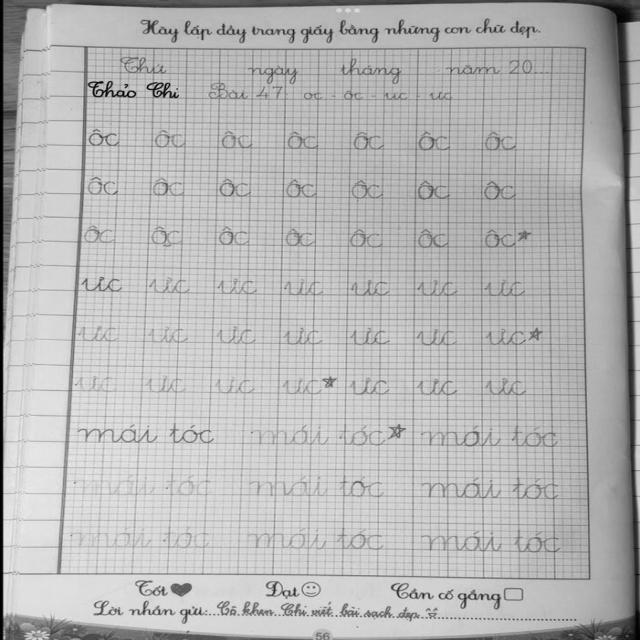 Hãy lấp đầy trang giấy bằng những con chữ đẹp.
Thứ ngày tháng năm 20...
Thảo Chi Bài 47: oc - ôc - uc - ưc
ôc ôc ôc ôc ôc ôc ôc
ôc ôc ôc ôc ôc ôc ôc
ôc ôc ôc ôc ôc ôc ôc
ưc ưc ưc ưc ưc ưc ưc
ưc ưc ưc ưc ưc ưc ưc
ưc ưc ưc ưc ưc ưc ưc
mái tóc mái tóc mái tóc
mái tóc mái tóc mái tóc
mái tóc mái tóc mái tóc
Tốt Đạt Cần cố gắng
Lời nhắn gửi: Cô khen Chi viết bài sạch đẹp
56